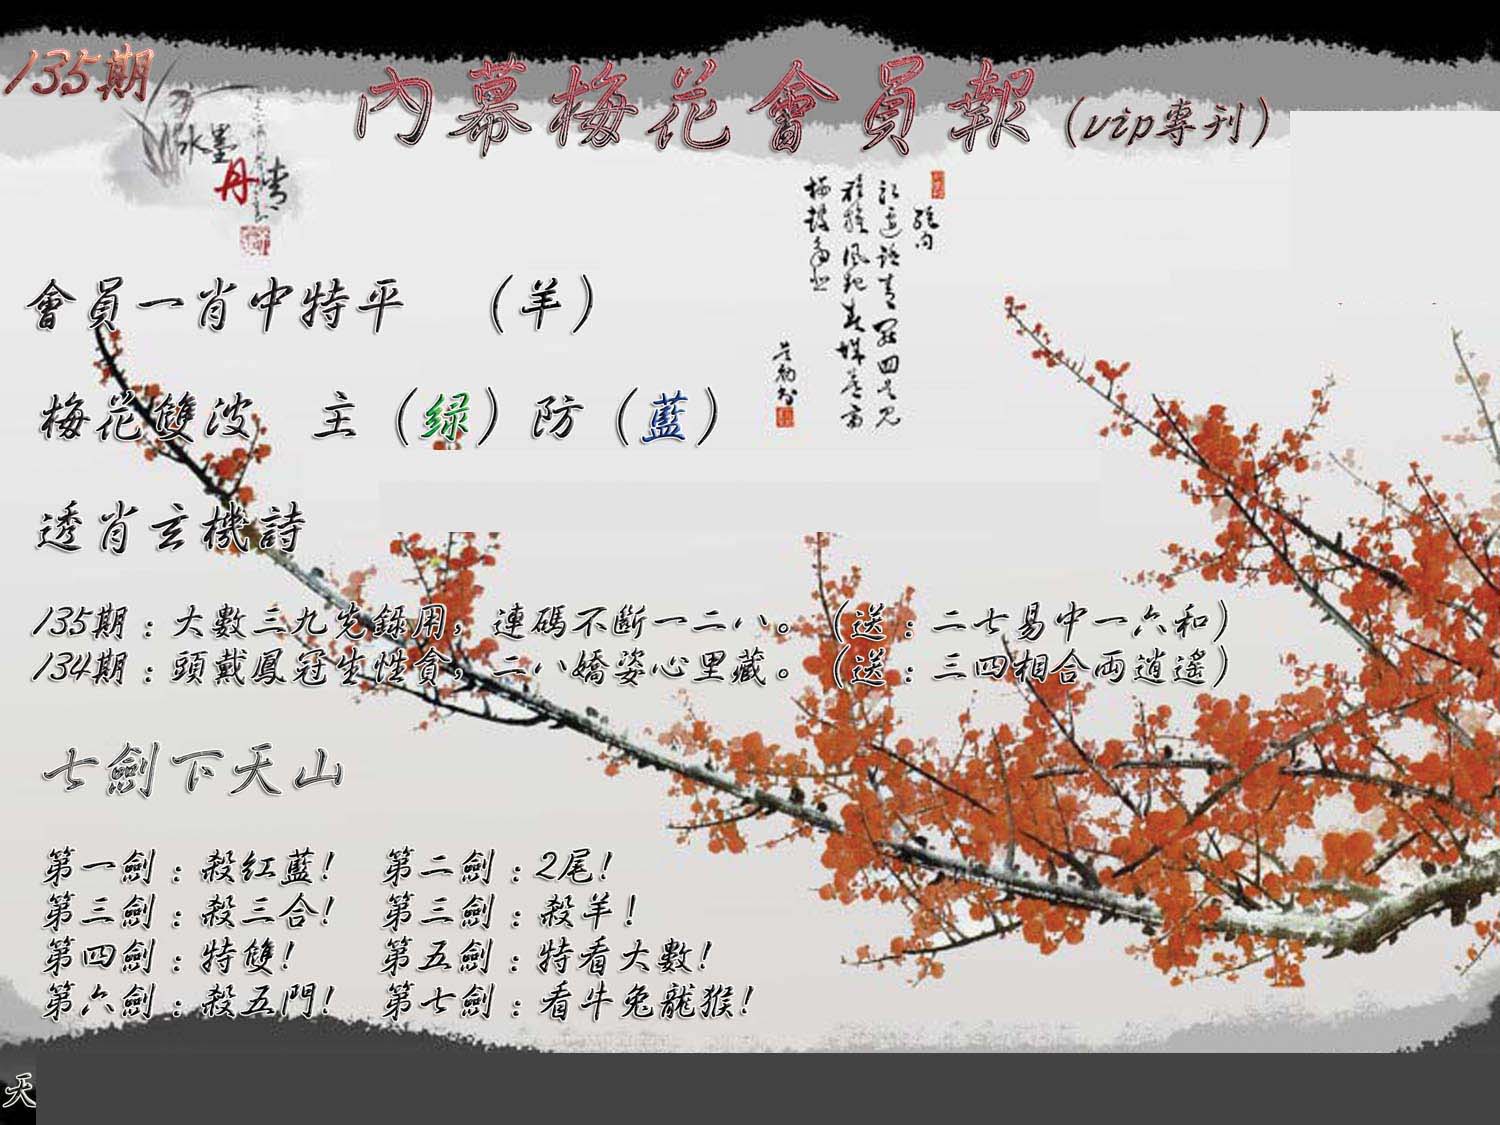 135期
內幕梅花會員報(vip專刊)
水墨
丹青
會員一肖中特平 (羊)
梅花雙波 主(绿)防(藍)
透肖玄機詩
135期：大數三九先錄用，連碼不斷一二八。(送：二七易中一六和)
134期：頭戴鳳冠生性貪，二八嬌姿心里藏。(送：三四相合両逍遙)
七劍下天山
第一劍：殺紅藍! 第二劍：2尾!
第三劍：殺三合! 第三劍：殺羊!
第四劍：特雙! 第五劍：特看大數!
第六劍：殺五門! 第七劍：看牛兔龍猴!
天